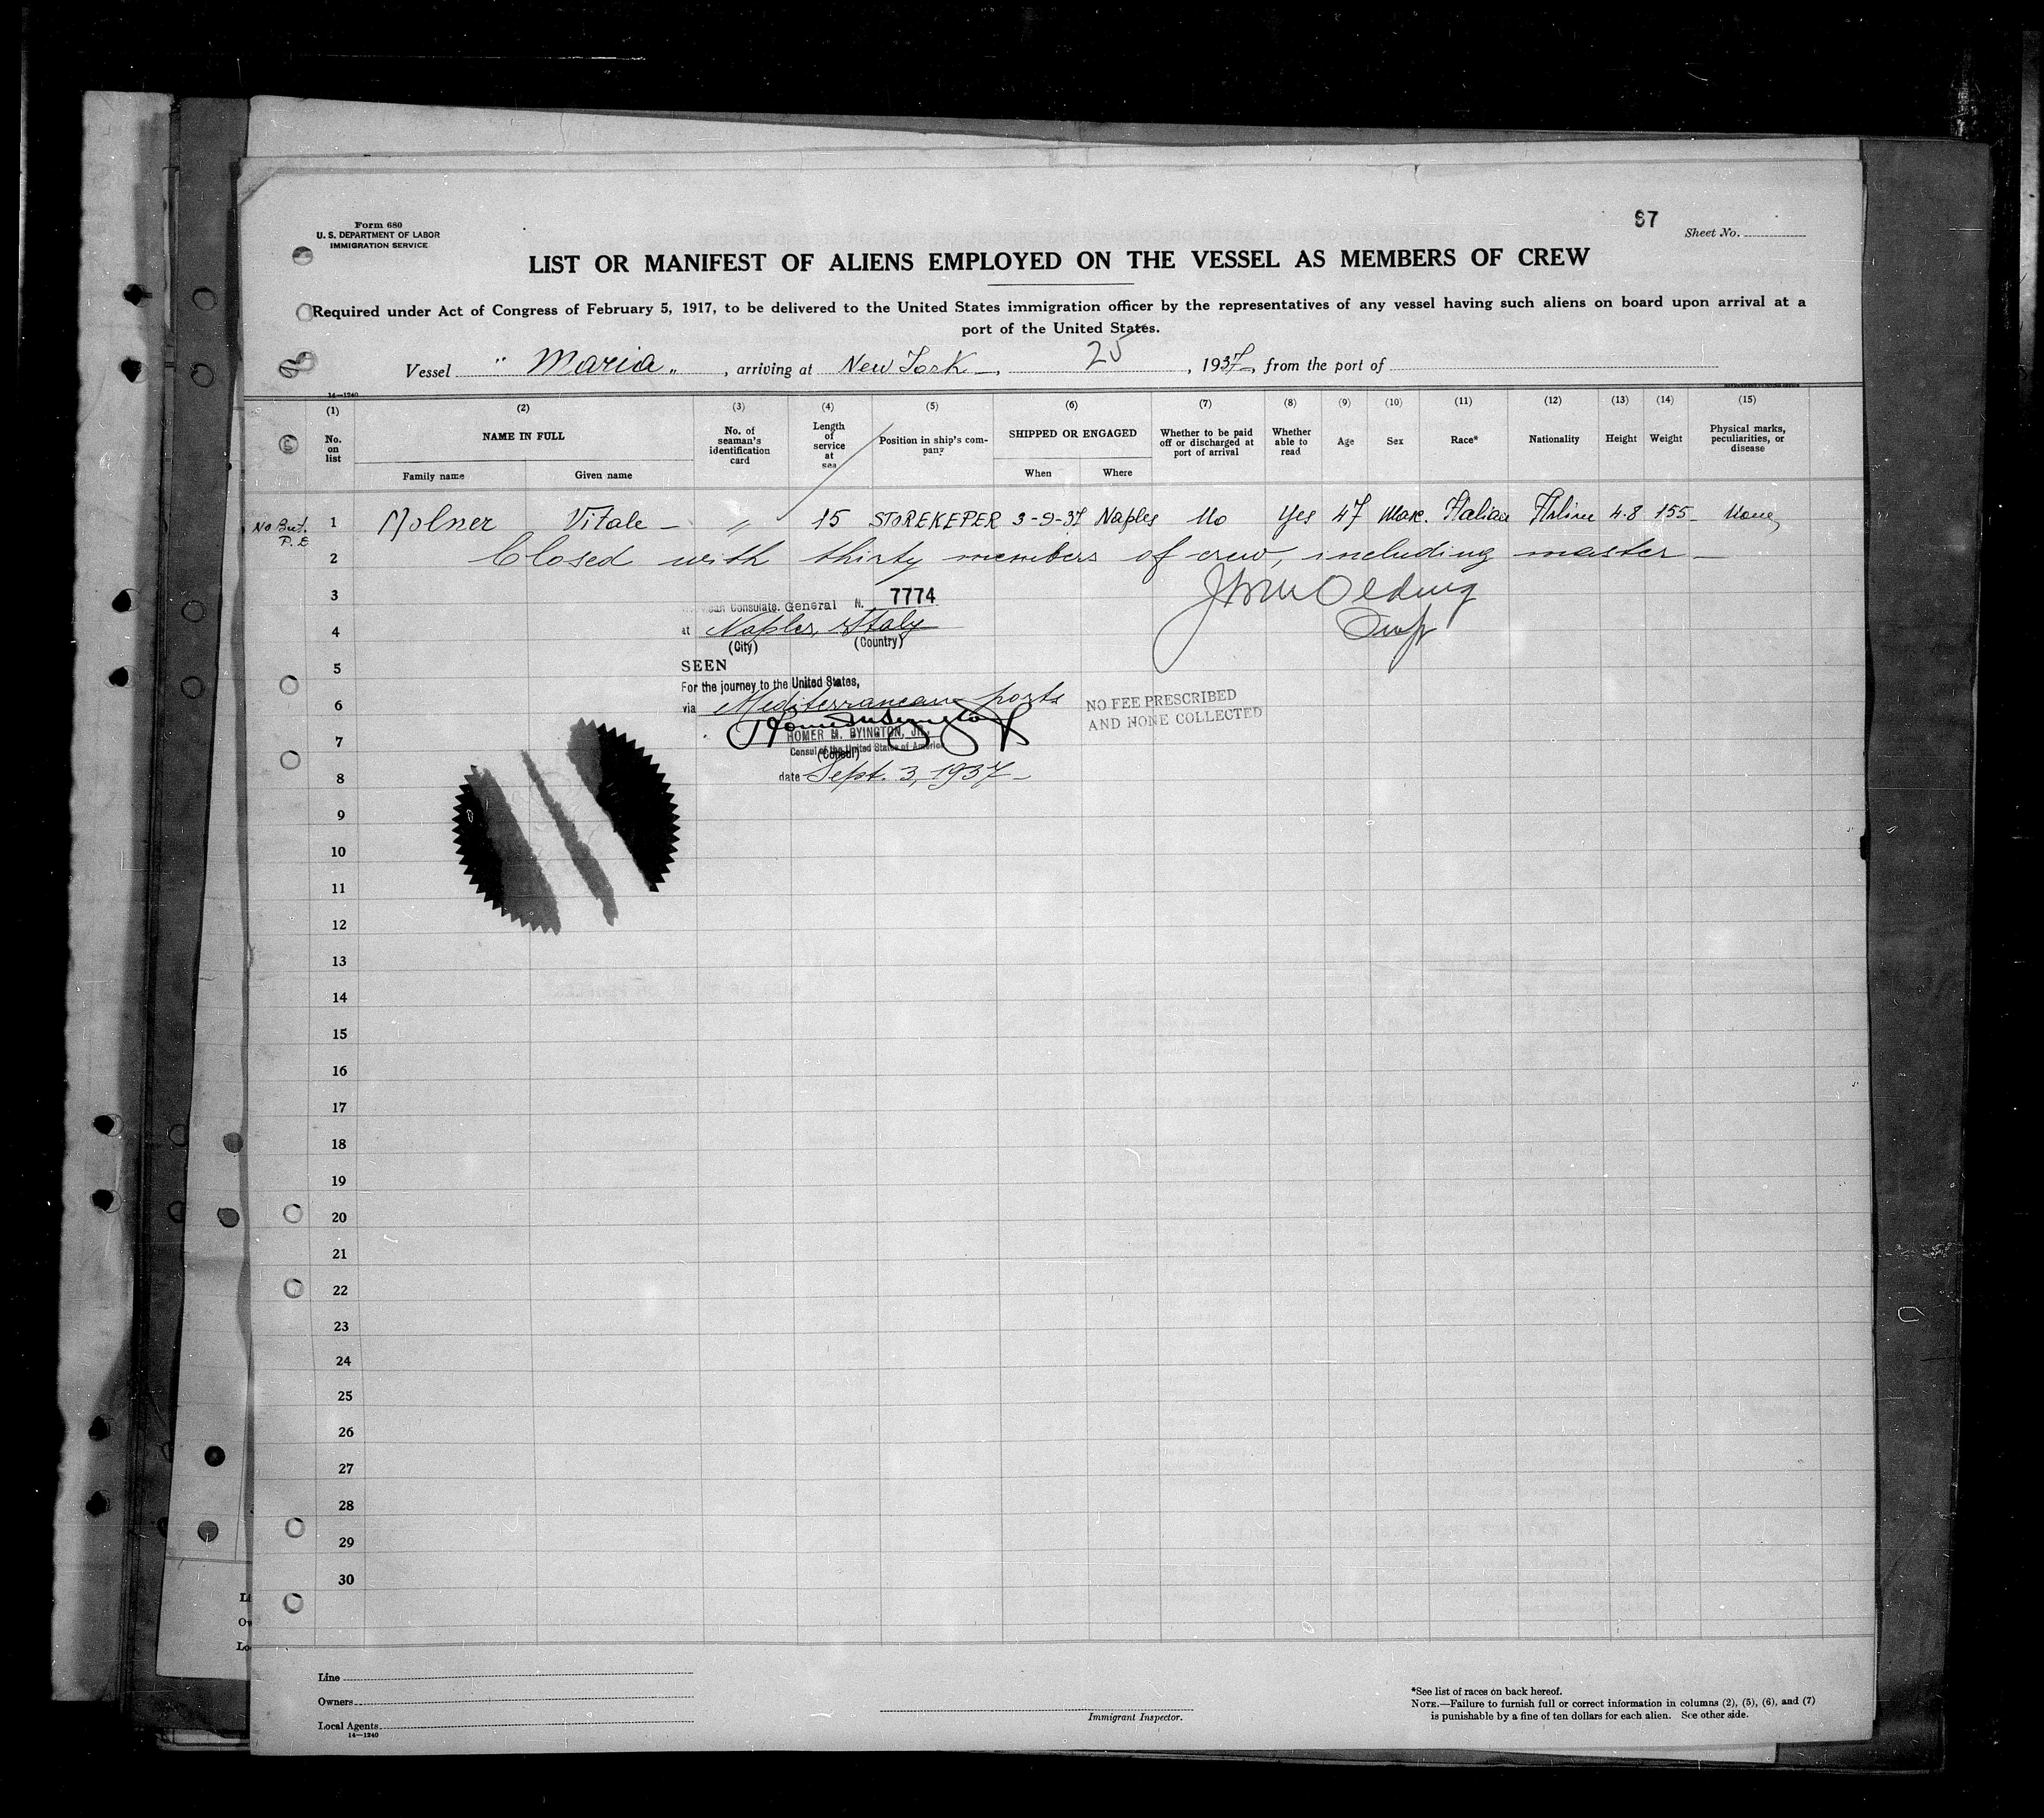 Form 680
U. S. DEPARTMENT OF LABOR
IMMIGRATION SERVICE
87
Sheet No.
LIST OR MANIFEST OF ALIENS EMPLOYED ON THE VESSEL AS MEMBERS OF CREW
Required under Act of Congress of February 5, 1917, to be delivered to the United States immigration officer by the representatives of any vessel having such aliens on board upon arrival at a
port of the United States.
Vessel " Maria „ , arriving at New York , 25 , 1937, from the port of
14—1240
(1) (2) (3) (4) (5) (6) (7) (8) (9) (10) (11) (12) (13) (14) (15)
No. on list
NAME IN FULL
Family name Given name
No. of seaman's identification card
Length of service at sea
Position in ship's company
SHIPPED OR ENGAGED
When Where
Whether to be paid off or discharged at port of arrival
Whether able to read
Age
Sex
Race*
Nationality
Height
Weight
Physical marks, peculiarities, or disease
1 Molner Vitale — " 15 STOREKEPER 3-9-37 Naples No Yes 47 Italian 4.8 155 None
2 Closed with thirty members of crew, including master —
3
Consulate General N. 7774
4
at Naples, Italy
(City) (Country)
5
SEEN
For the journey to the United States,
6
via Mediterranean ports
NO FEE PRESCRIBED
AND NONE COLLECTED
7
HOMER M. BYINGTON, JR.
Consul of the United States of America
(Consul)
8
date Sept. 3, 1937 —
9
10
11
12
13
14
15
16
17
18
19
20
21
22
23
24
25
26
27
28
29
30
Line
Owners
Local Agents
14—1240
Immigrant Inspector.
*See list of races on back hereof.
NOTE.—Failure to furnish full or correct information in columns (2), (5), (6), and (7)
is punishable by a fine of ten dollars for each alien. See other side.